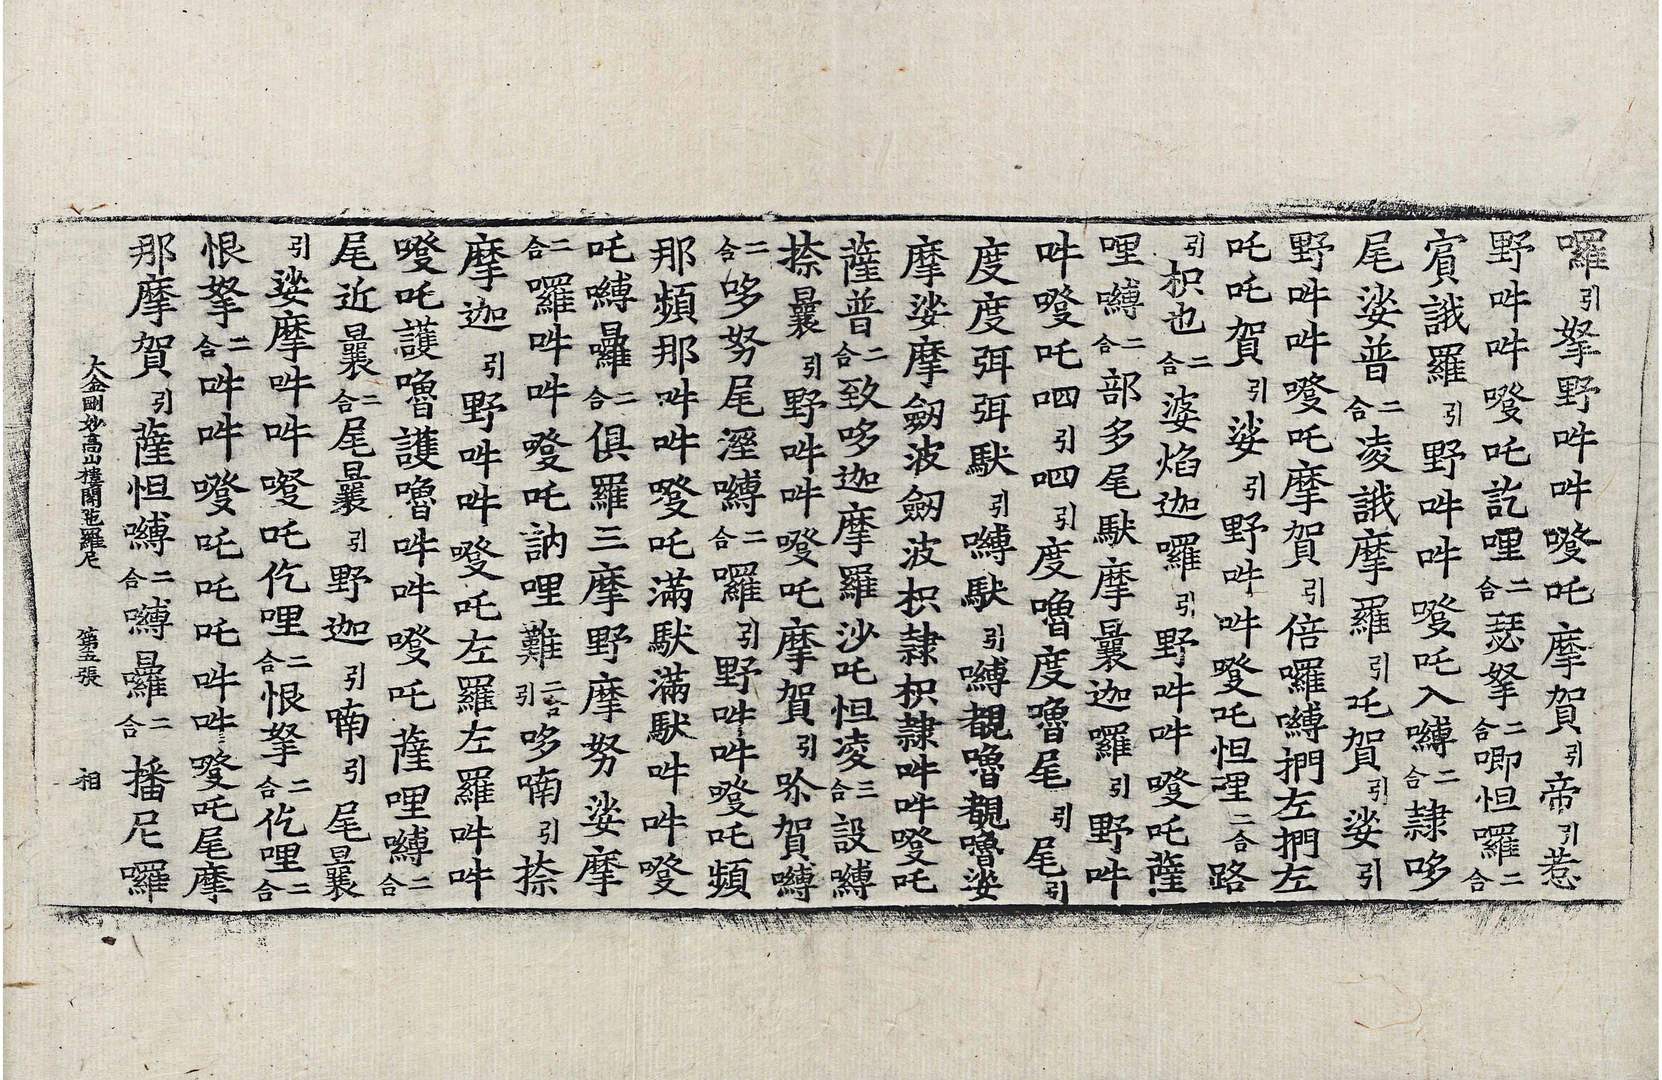 囉引拏野吽吽癹吒摩賀引帝引惹
野吽吽癹吒訖哩二合瑟拏二合唧怛囉二合
賓誐羅引野吽吽癹吒入嚩二合隷哆
尾娑普二合凌誐摩羅引吒賀引娑引
野吽吽癹吒摩賀引倍囉嚩捫左捫左
吒吒賀引娑引野吽吽癹吒怛哩二合路
引枳也二合婆焰迦囉引野吽吽癹吒薩
哩嚩二合部多尾馱摩曩迦囉引野吽
吽癹吒呬引呬引度嚕度嚕尾引尾引
度度弭弭馱引嚩馱引嚩覩嚕覩嚕娑
摩娑摩劒波劒波枳隷枳隷吽吽癹吒
薩普二合致哆迦摩羅沙吒怛凌三合設嚩
捺曩引野吽吽癹吒摩賀引尒賀嚩
二合哆努尾溼嚩二合囉引野吽吽癹吒頻
那頻那吽吽癹吒滿馱滿馱吽吽癹
吒嚩曩囉二合俱羅三摩野摩努娑摩
二合囉吽吽癹吒訥哩難二合引哆喃引捺
摩迦引野吽吽癹吒左羅左羅吽吽
癹吒護嚕護嚕吽吽癹吒薩哩嚩二合
尾近曩二合尾曩引野迦引喃引尾曩
引娑摩吽吽癹吒仡哩二合恨拏二合仡哩二合
恨拏二合吽吽癹吒吒吒吽吽癹吒尾摩
那摩賀引薩怛嚩二合嚩囉二合播尼囉
大金剛妙高山樓閣陁羅尼　第五張　相